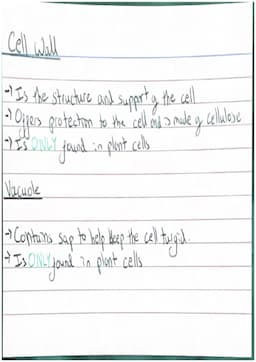 Cell Wall
→ Is the structure and support of the cell
→ Offers protection to the cell and is made of cellulose
→ Is ONLY found in plant cells
Vacuole
→ Contains sap to help keep the cell turgid.
→ Is ONLY found in plant cells